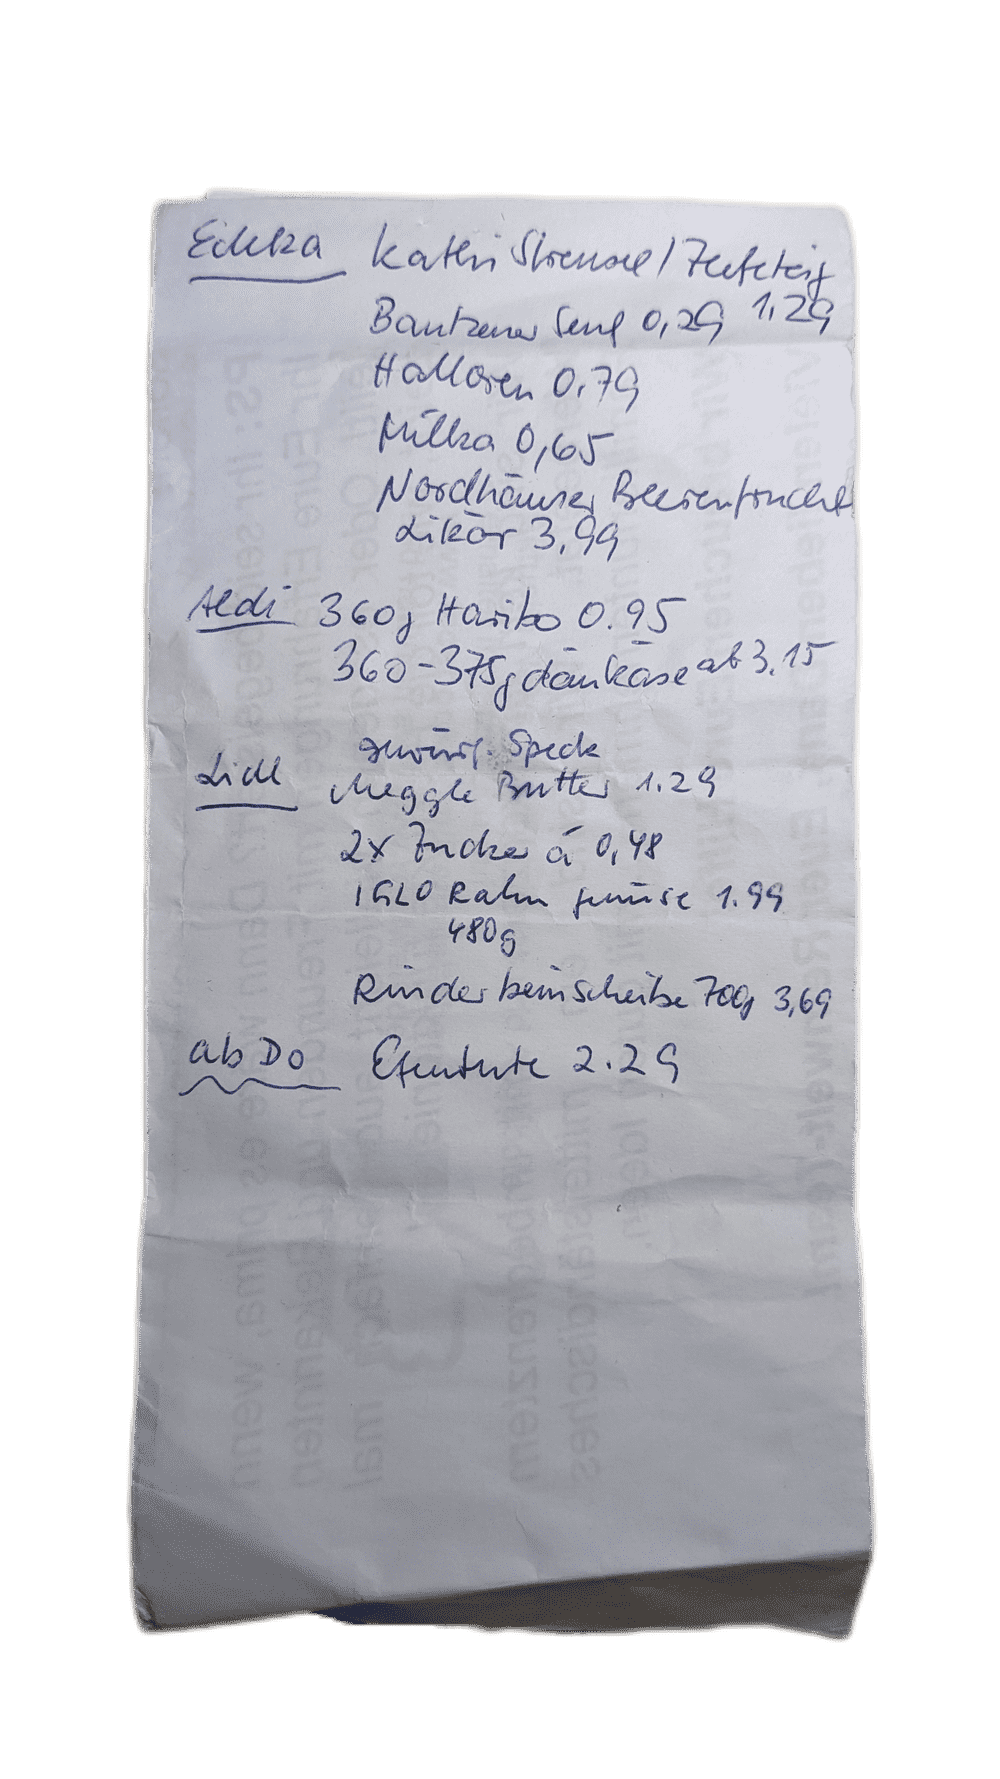 Edeka Kathi Streusel / Hefeteig
Bautzener Senf 0,29 1.29
Halloren 0.79
Milka 0,65
Nordhäuser Beerenfrucht
Likör 3,99
Aldi 360g Haribo 0.95
360-375g dankäse ab 3.15
gewürf. Speck
Lidl Meggle Butter 1.29
2x Zucker á 0,48
IGLO Rahmgemüse 1.99
480g
Rinderbeinscheibe 700g 3,69
ab Do 2.29